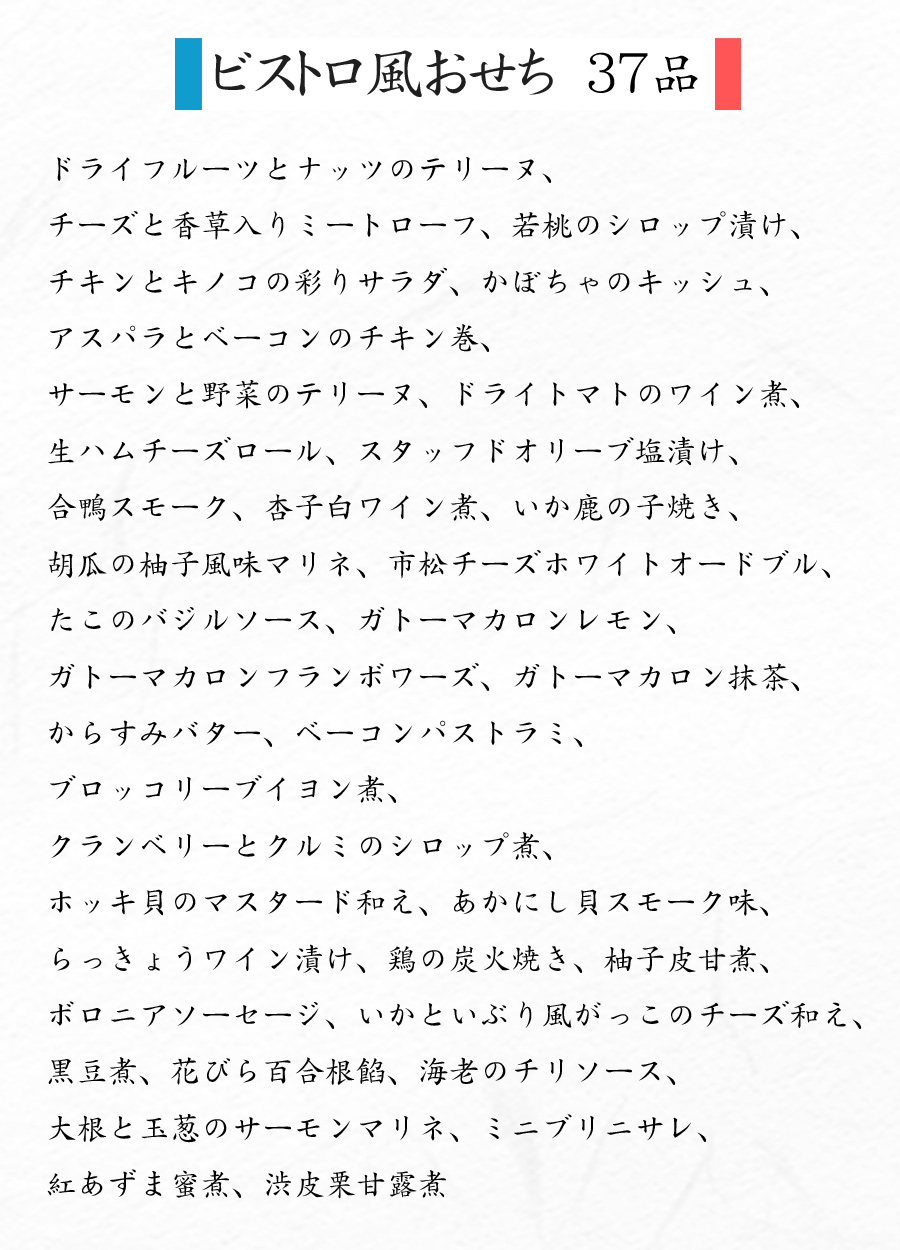 ビストロ風おせち 37品
ドライフルーツとナッツのテリーヌ、
チーズと香草入りミートローフ、若桃のシロップ漬け、
チキンとキノコの彩りサラダ、かぼちゃのキッシュ、
アスパラとベーコンのチキン巻、
サーモンと野菜のテリーヌ、ドライトマトのワイン煮、
生ハムチーズロール、スタッフドオリーブ塩漬け、
合鴨スモーク、杏子白ワイン煮、いか鹿の子焼き、
胡瓜の柚子風味マリネ、市松チーズホワイトオードブル、
たこのバジルソース、ガトーマカロンレモン、
ガトーマカロンフランボワーズ、ガトーマカロン抹茶、
からすみバター、ベーコンパストラミ、
ブロッコリーブイヨン煮、
クランベリーとクルミのシロップ煮、
ホッキ貝のマスタード和え、あかにし貝スモーク味、
らっきょうワイン漬け、鶏の炭火焼き、柚子皮甘煮、
ボロニアソーセージ、いかといぶり風がっこのチーズ和え、
黒豆煮、花びら百合根餡、海老のチリソース、
大根と玉葱のサーモンマリネ、ミニブリニサレ、
紅あずま蜜煮、渋皮栗甘露煮